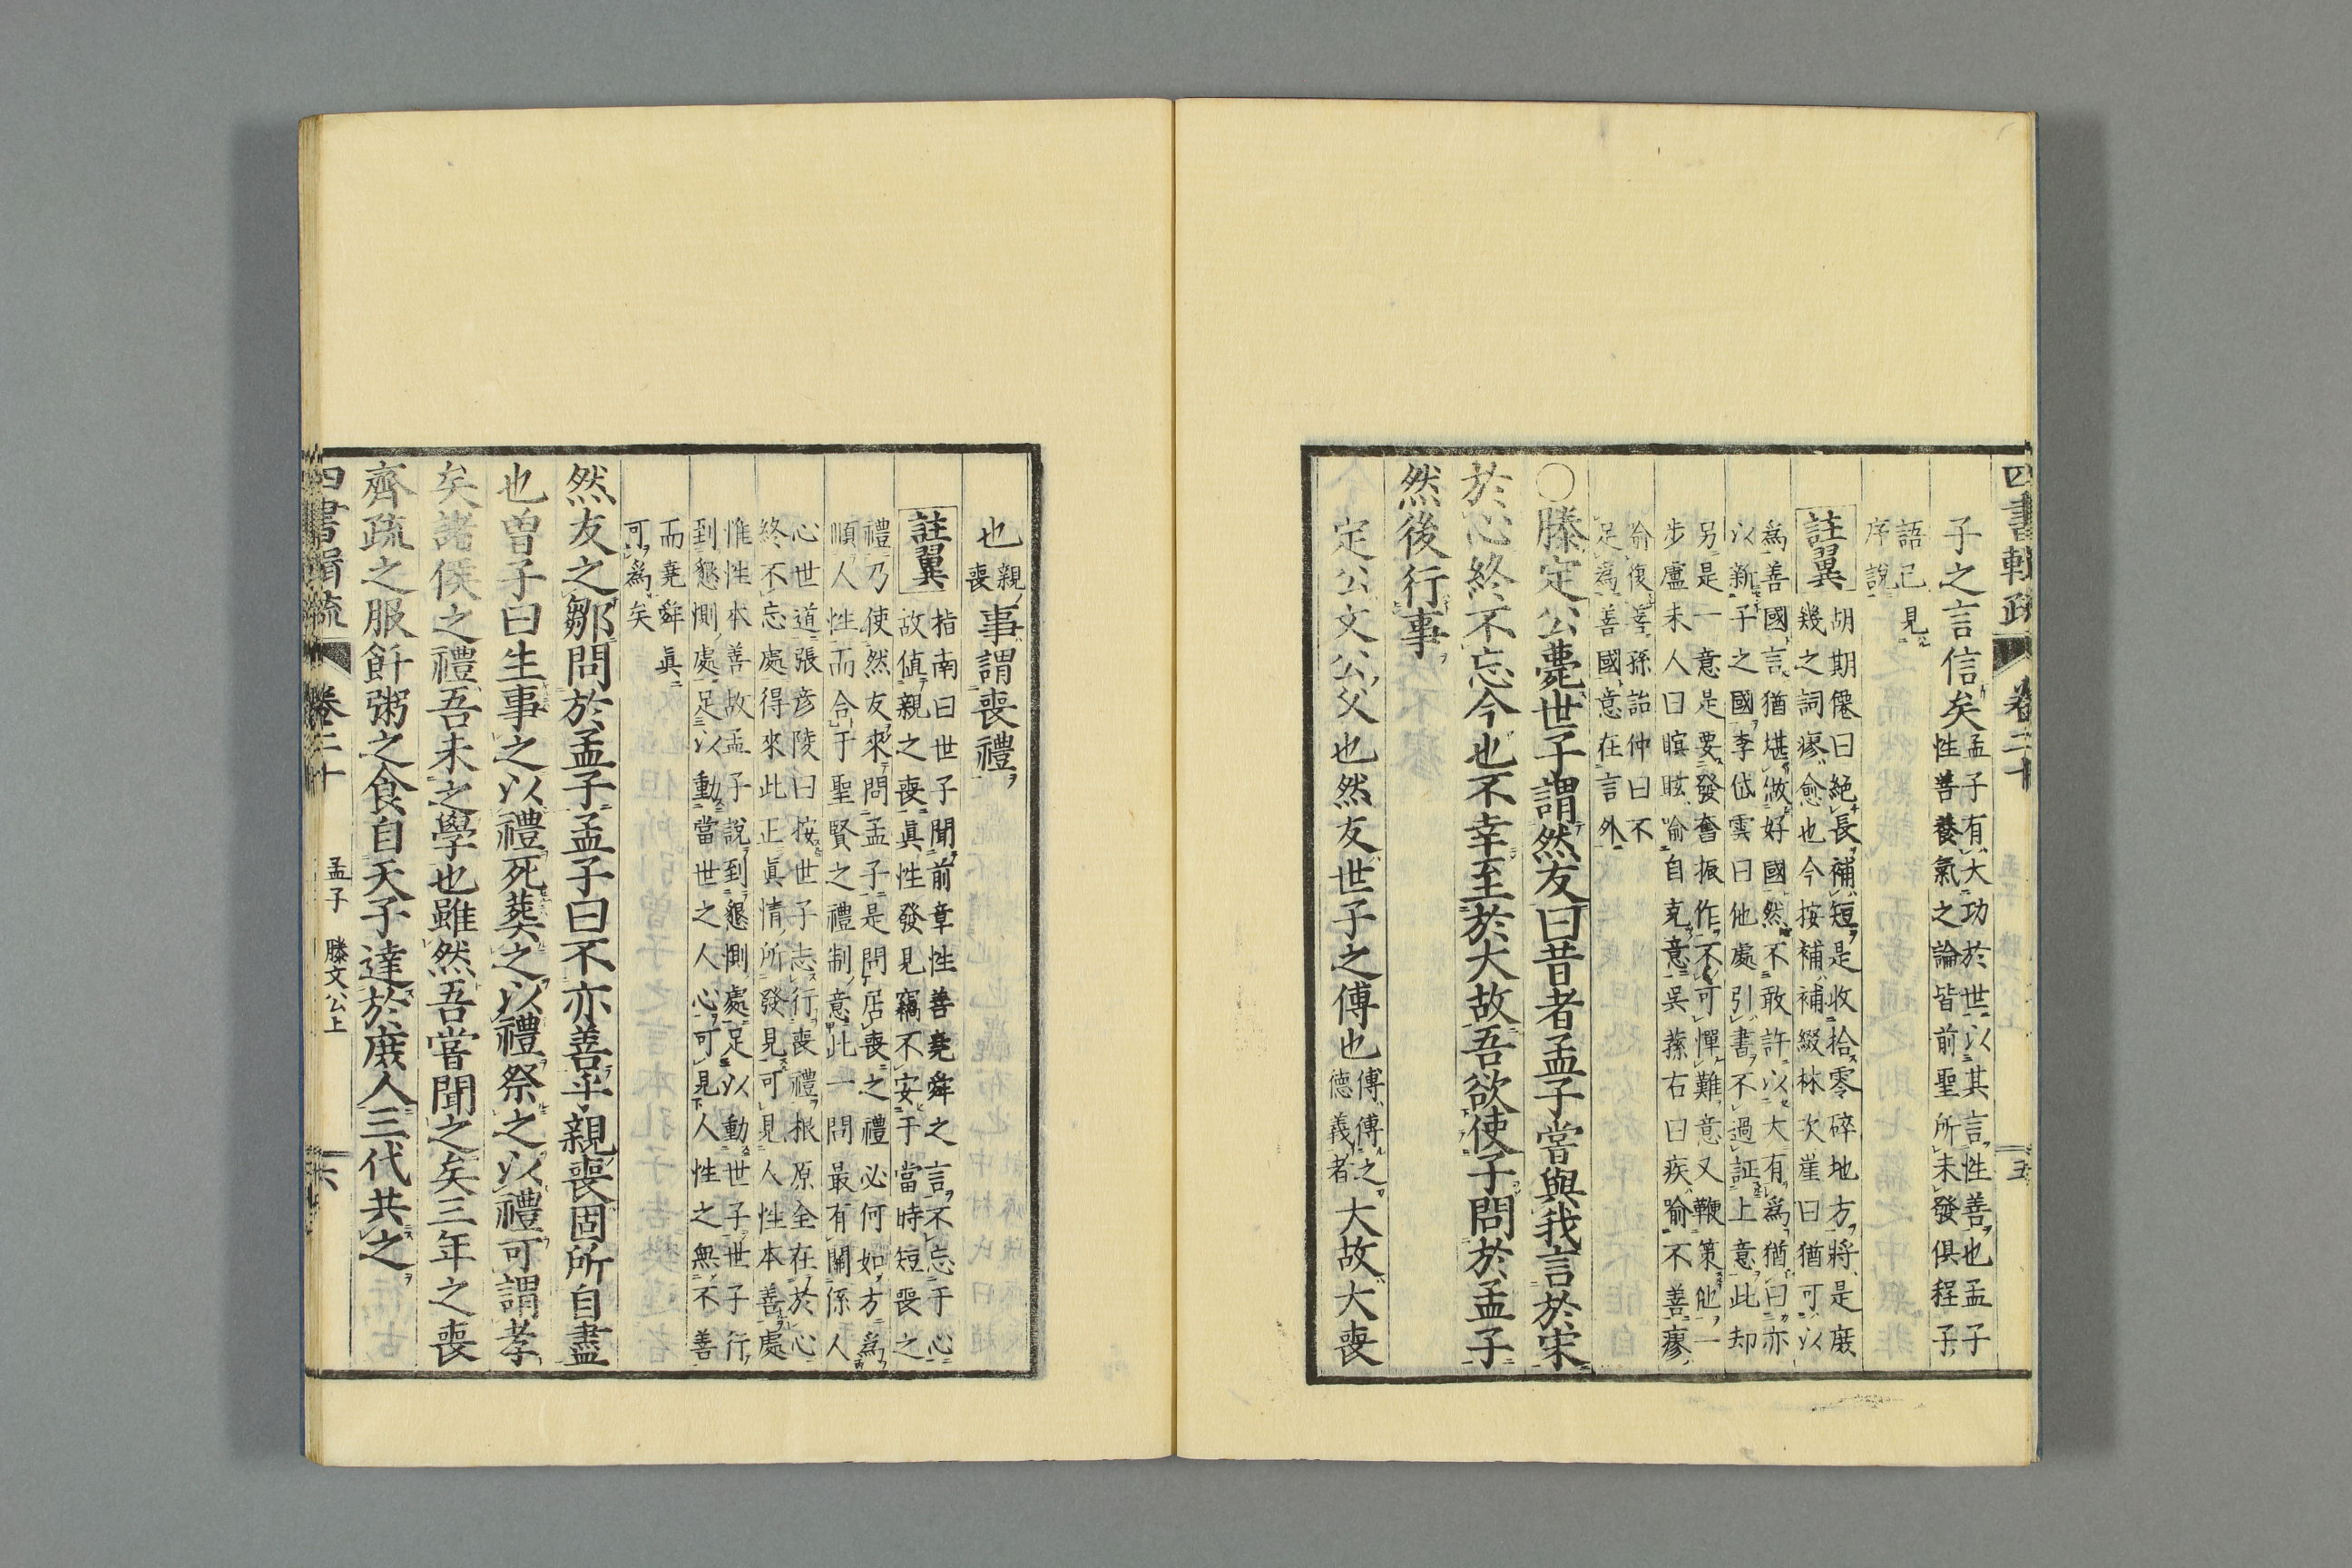 四書輯疏 卷二十 五
子之言信矣孟子有大功於世以其言性善也孟子
性善養氣之論皆前聖所未發俱程子
語已見
序說
註翼 胡期僊曰絶長補短是收拾零碎地方將是廢
幾之詞瘳愈也今按補補綴林次崖曰猶可以
爲善國言猶堪做好國然不敢許以大有爲猶曰亦
以新子之國李岱雲曰他處引書不過証上意此却
另是一意是要發奮振作不可憚難意又鞭策他一
步盧未人曰瞑眩喻自克意吳蓀右曰疾喻不善瘳
喻復善孫詒仲曰不
足爲善國意在言外
○滕定公薨世子謂然友曰昔者孟子嘗與我言於宋
於心終不忘今也不幸至於大故吾欲使子問於孟子
然後行事
定公文公父也然友世子之傅也傅傅之
德義者大故大喪
也親
喪事謂喪禮
註翼 指南曰世子聞前章性善堯舜之言不忘于心
故値親之喪眞性發見竊不安于當時短喪之
禮乃使然友來問孟子是問居喪之禮必何如方爲
順人性而合于聖賢之禮制意此一問最有關係人
心世道張彦陵曰按世子志行喪禮根原全在於心
終不忘處得來此正眞情所發見可見人性本善處
惟性本善故孟子說到懇惻處足以動世子世子行
到懇惻處足以動當世之人心可見人性之無不善
而堯舜眞
可爲矣
然友之鄒問於孟子孟子曰不亦善乎親喪固所自盡
也曾子曰生事之以禮死葬之以禮祭之以禮可謂孝
矣諸侯之禮吾未之學也雖然吾嘗聞之矣三年之喪
齊疏之服飦粥之食自天子達於庶人三代共之
四書輯疏 卷二十 孟子 滕文公上 六